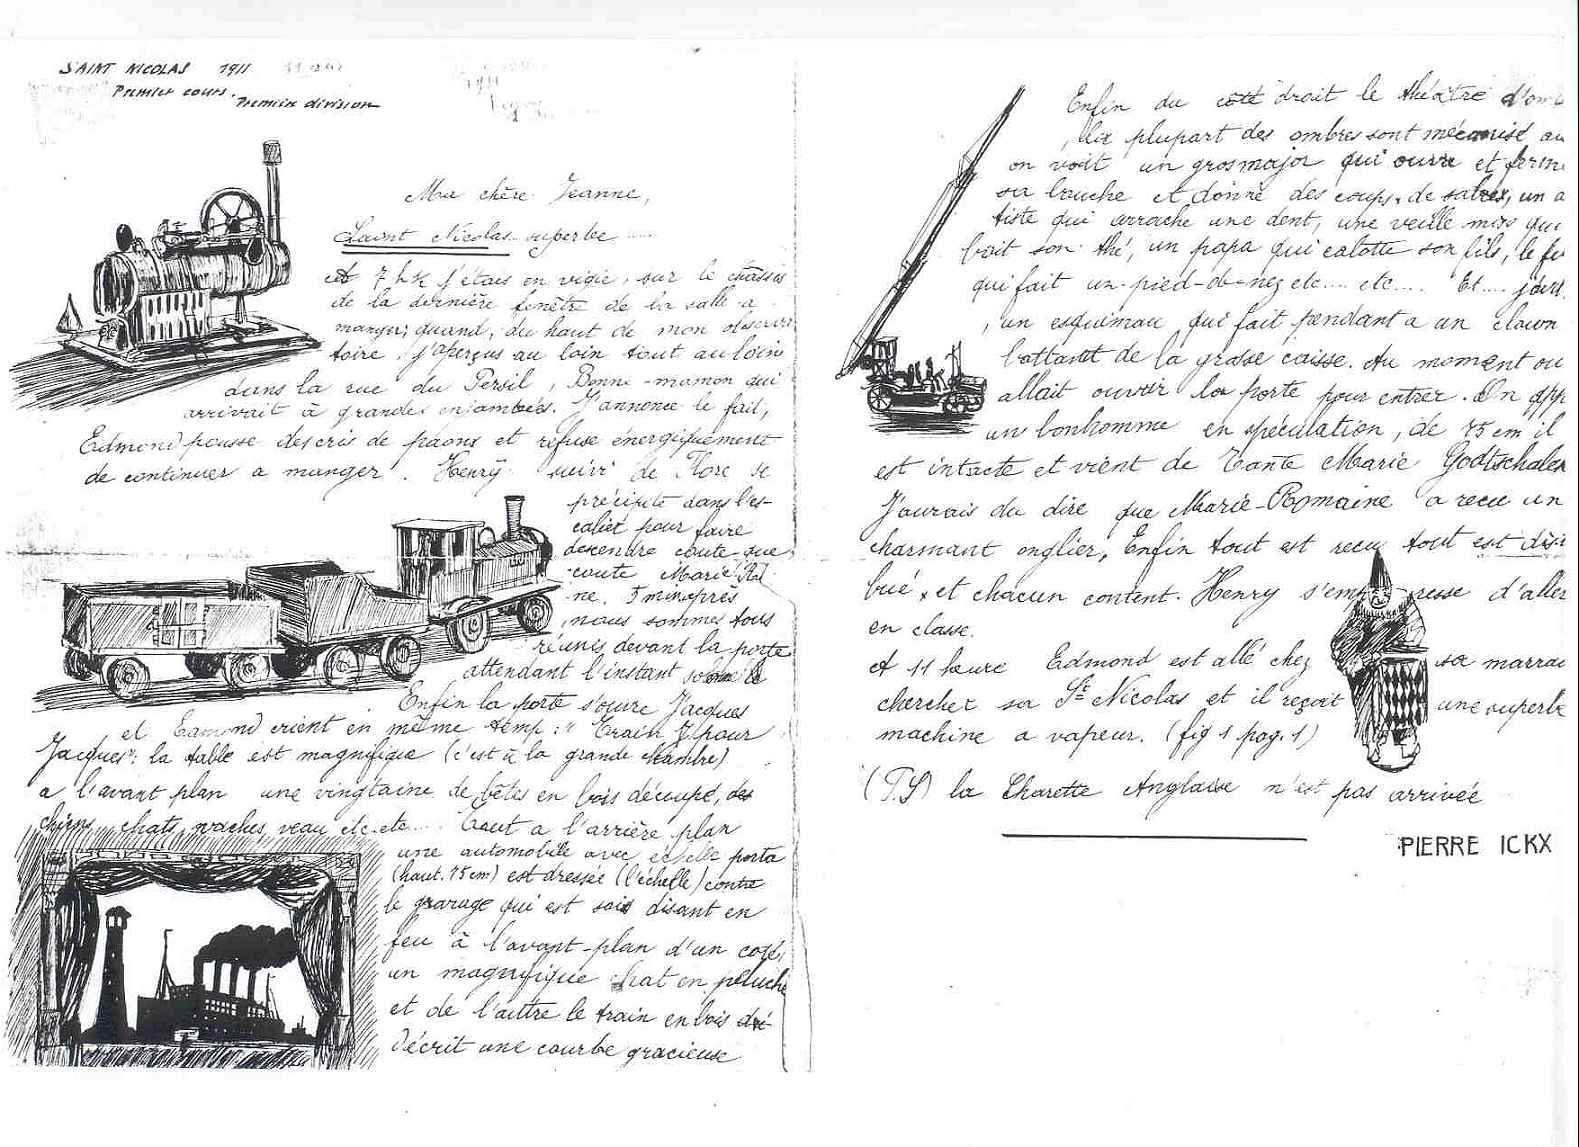 SAINT NICOLAS 1911
Premier cours.
Première division
Ma chère Jeanne,
Saint Nicolas superbe .....
A 7 h ¼ j'étais en vigie, sur le châssis
de la dernière fenêtre de la salle a
manger; quand, du haut de mon observa
toire j'aperçus au loin tout au loin
dans la rue du Persil, Bonne-maman qui
arrivait à grandes enjambées. J'annonce le fait,
Edmond pousse des cris de paons et refuse énergiquement
de continuer a manger. Henry suivi de Flore se
précipite dans l'es-
calier pour faire
descendre coute que
coute Marie-Ro
ne. 5 min après
, nous sommes tous
réunis devant la porte
attendant l'instant
Enfin la porte s'ouvre Jacques
et Edmond crient en même temp : "Train pour
Jacques": la table est magnifique (c'est à la grande chambre)
a l'avant plan une vingtaine de bêtes en bois découpé, des
chiens, chats, vaches, veau etc. etc.... Tout a l'arrière plan
une automobile avec échelle porta
(haut. 75 cm) est dressée (l'échelle) contre
le grarage qui est sois disant en
feu à l'avant-plan d'un coté,
un magnifique chat en peluche
et de l'autre le train en bois dé
décrit une courbe gracieuse
Enfin du coté droit le théatre d'om
, la plupart des ombres sont mécanisé au
on voit un gros major qui ouvre et ferme
sa bouche et donne des coups, de sabres, un a
tiste qui arrache une dent, une veille miss qui
boit son thé, un papa qui calotte son fils, le fi
qui fait un-pied-de-nez etc.... etc.... Et....
, un esquimau qui fait pendant a un clown
battant de la grosse caisse. Au moment ou
allait ouvrir la porte pour entrer. On app
un bonhomme en spéculation, de 75 cm il
est intacte et vient de Tante Marie Godtschalck
J'aurais du dire que Marie-Romaine a recu un
charmant onglier, Enfin tout est recu tout est dis
bué, et chacun content. Henry s'empresse d'aller
en classe.
A 11 heure Edmond est allé chez sa marrai
chercher sa St Nicolas et il reçoit une superbe
machine a vapeur. (fig 1 pag. 1)
(P.S) la Charette Anglaise n'est pas arrivée
PIERRE ICKX